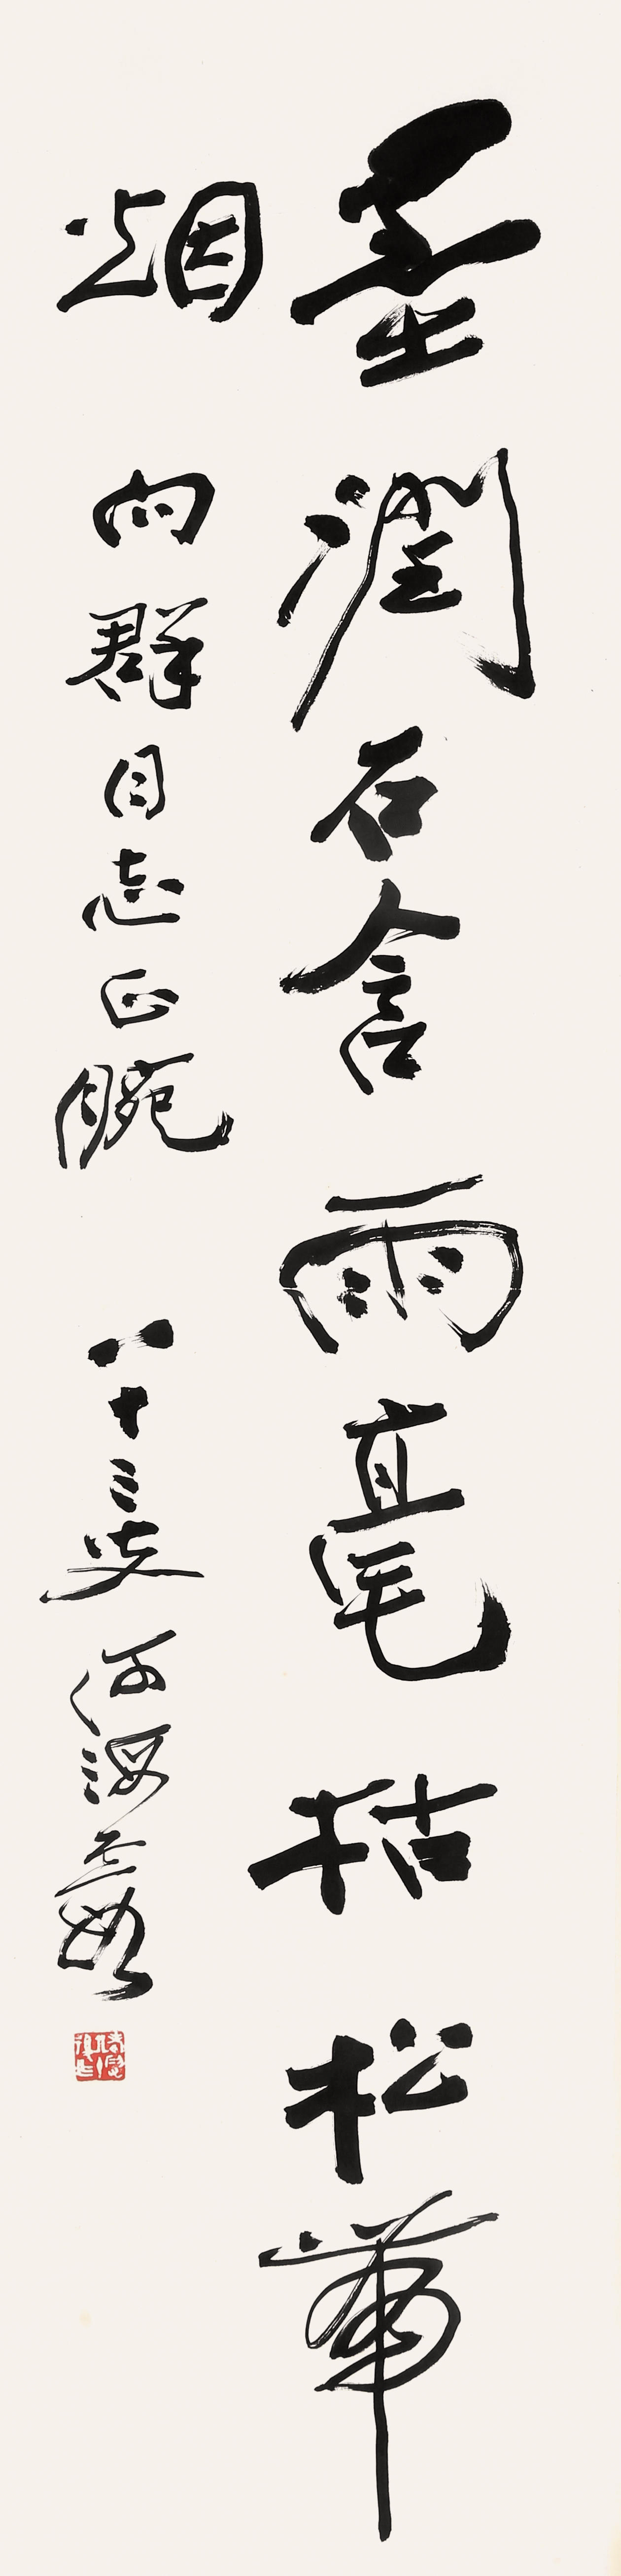 墨潤石含雨毫枯松帶
烟 向群同志正腕 八十三叟何海霞